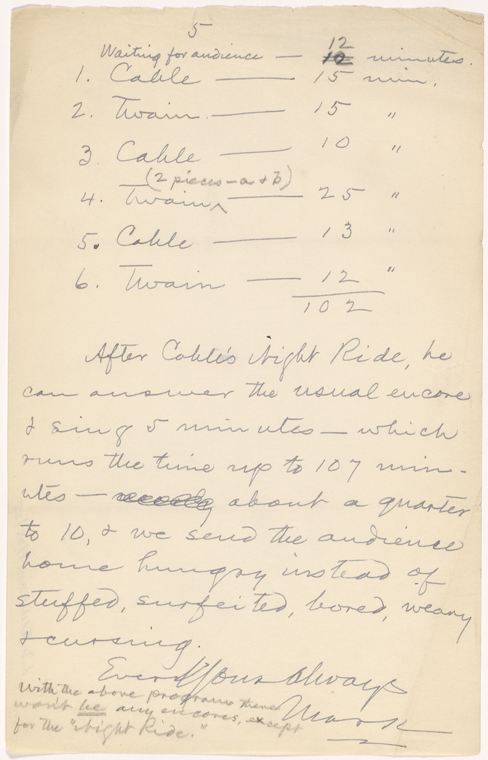 5
Waiting for audience — 12 minutes.
1. Cable — 15 min.
2. Twain. — 15 "
3 Cable — 10 "
(2 pieces — a & b)
4. Twain ‸ — 25 "
5. Cable — 13 "
6. Twain — 12 "
102
After Cable's Night Ride, he
can answer the usual encore
& sing 5 minutes — which
runs the time up to 107 min-
utes — about a quarter
to 10, & we send the audience
home hungry instead of
stuffed, surfeited, bored, weary
& cursing.
Ever Yours Always
Mark
With the above programs there
won't be any encores, except
for the "Night Ride."